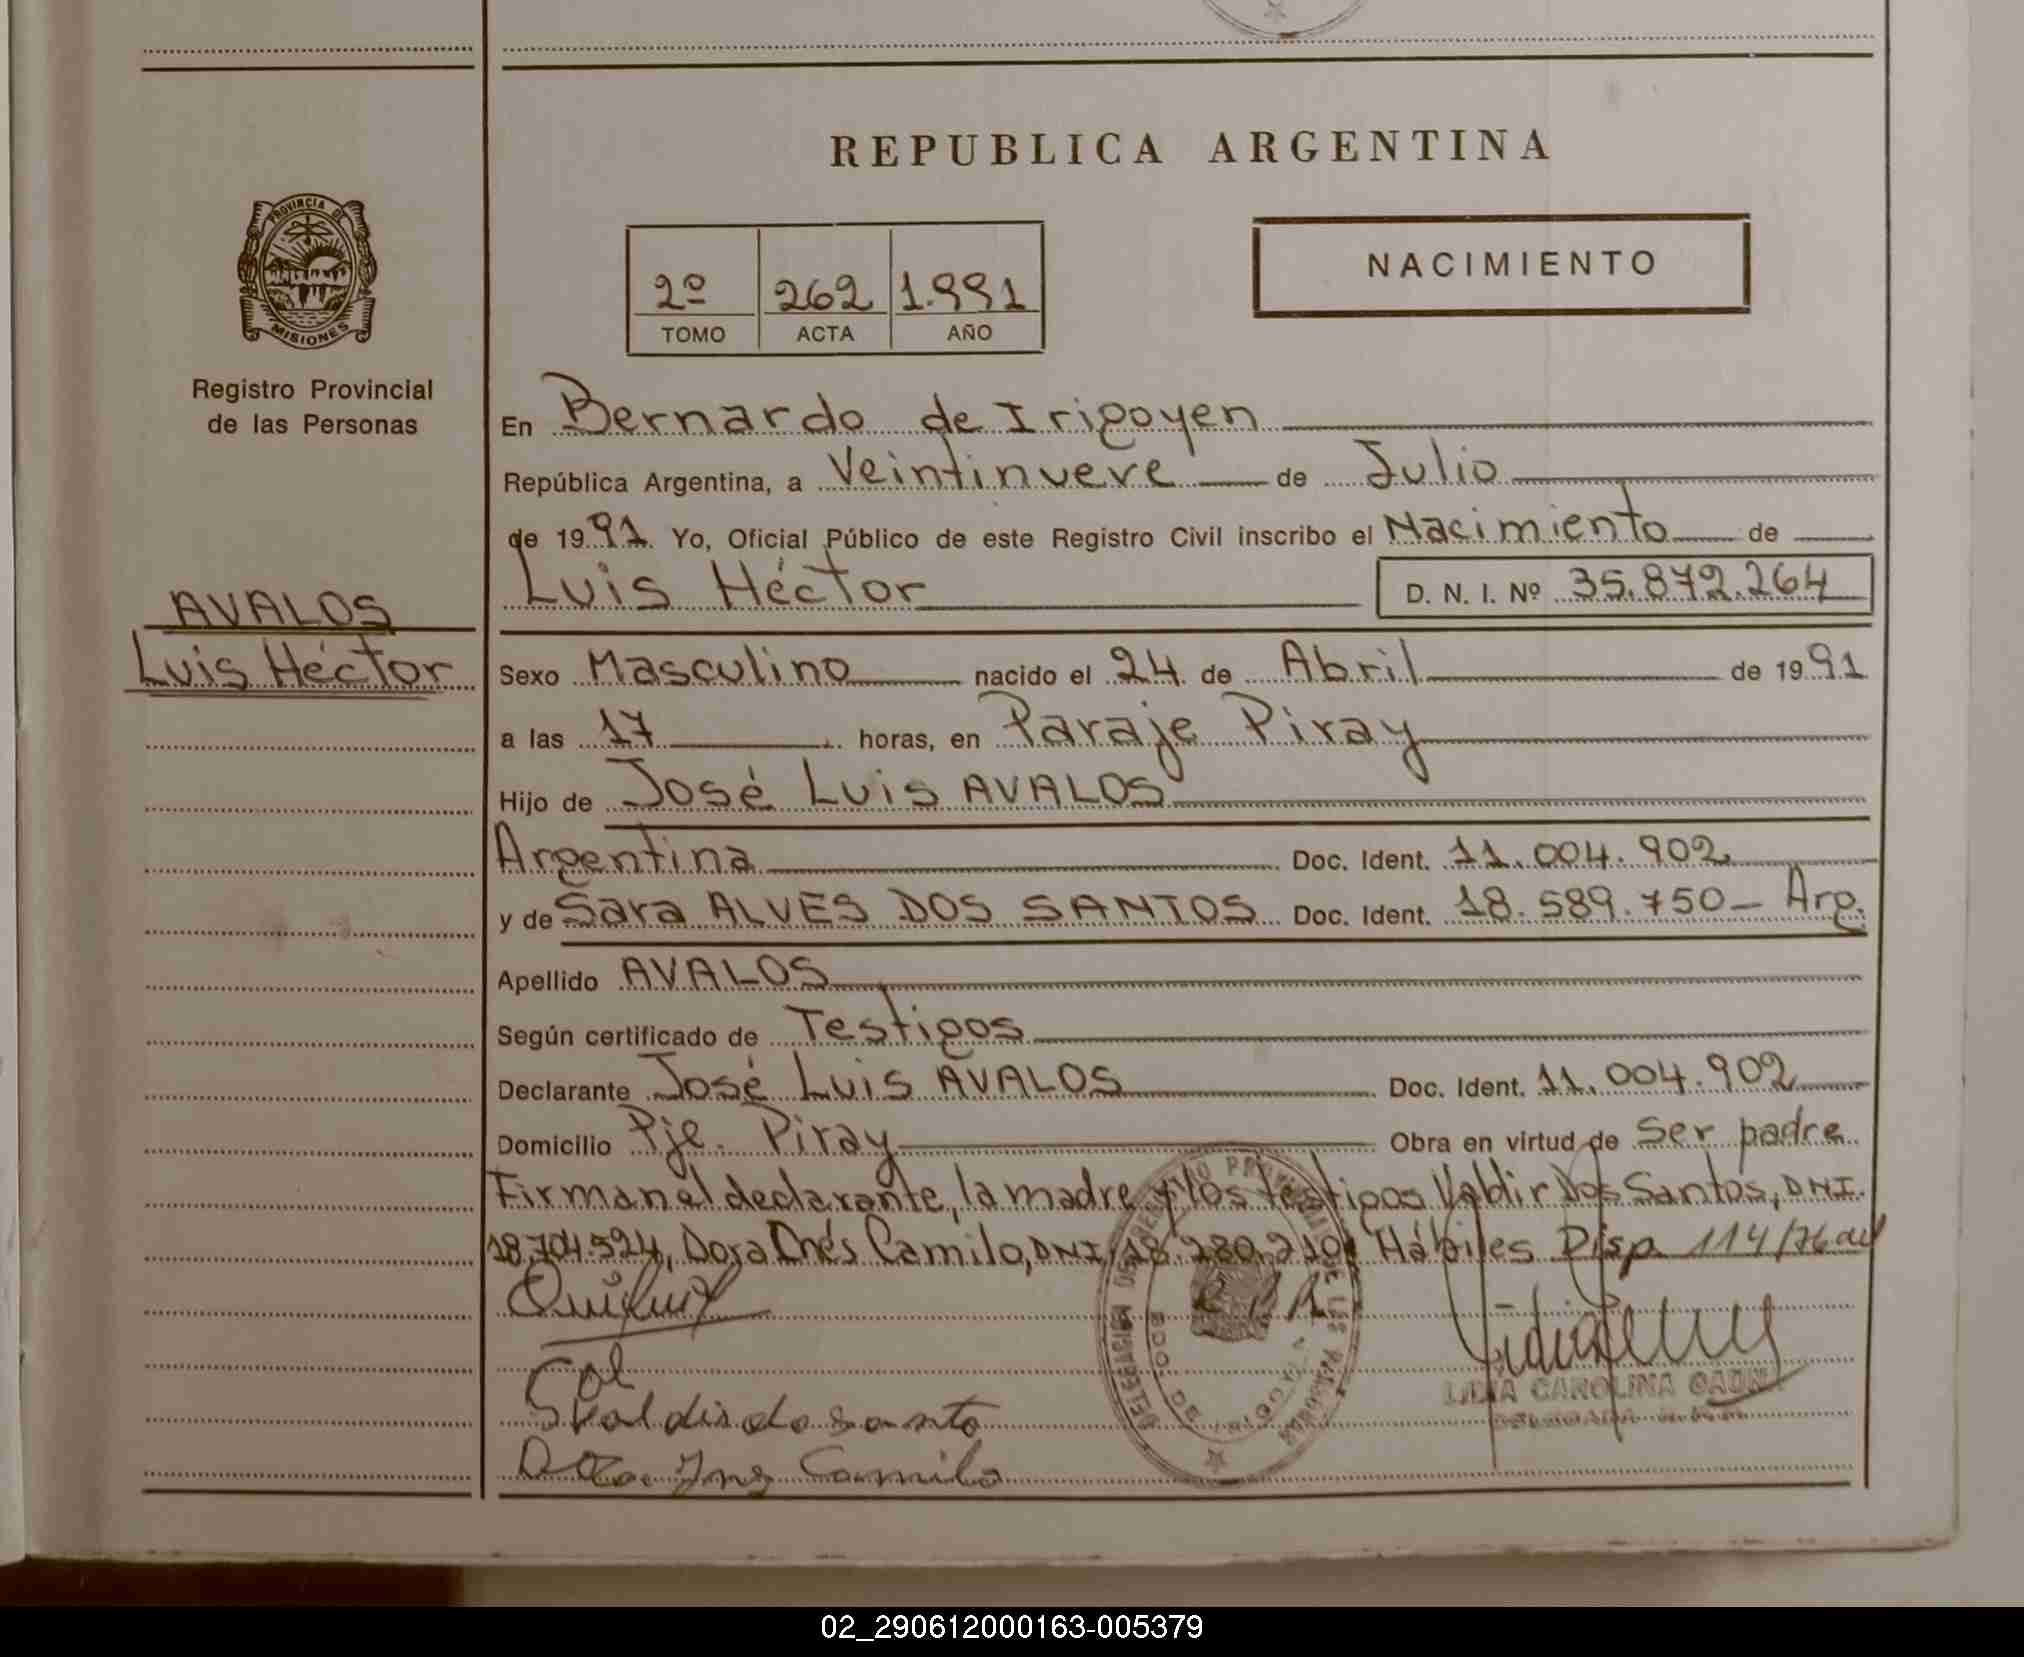 REPUBLICA ARGENTINA
PROVINCIA DE
MISIONES
Registro Provincial
de las Personas
2º 262 1.991
TOMO ACTA AÑO
NACIMIENTO
En Bernardo de Irigoyen
República Argentina, a Veintinueve de Julio
de 1991 Yo, Oficial Público de este Registro Civil inscribo el Nacimiento de
Luis Héctor D. N. I. Nº 35.872.264
AVALOS
Luis Héctor
Sexo Masculino nacido el 24 de Abril de 1991
a las 17 horas, en Paraje Piray
Hijo de José Luis AVALOS
Argentina Doc. Ident. 11.004.902
y de Sara ALVES DOS SANTOS Doc. Ident. 18.589.750- Arg.
Apellido AVALOS
Según certificado de Testigos
Declarante José Luis AVALOS Doc. Ident. 11.004.902
Domicilio Pje. Piray Obra en virtud de Ser padre
Firman el declarante, la madre y los testigos Valdir Dos Santos, DNI.
18.704.524, Dora Inés Camilo, DNI. 18.280.210. Hábiles Disp. 114/76
LIDIA CAROLINA
Camilo
02_290612000163-005379